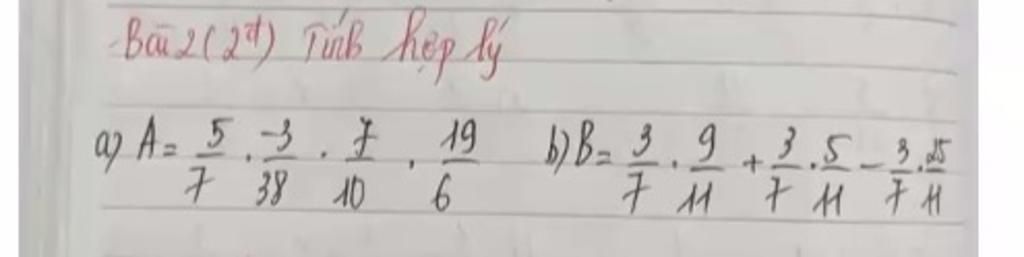 Bài 2 (2đ) Tính hợp lý
a) A = 5/7 . -3/38 . 7/10 . 19/6 b) B = 3/7 . 9/11 + 3/7 . 5/11 - 3/7 . 25/11